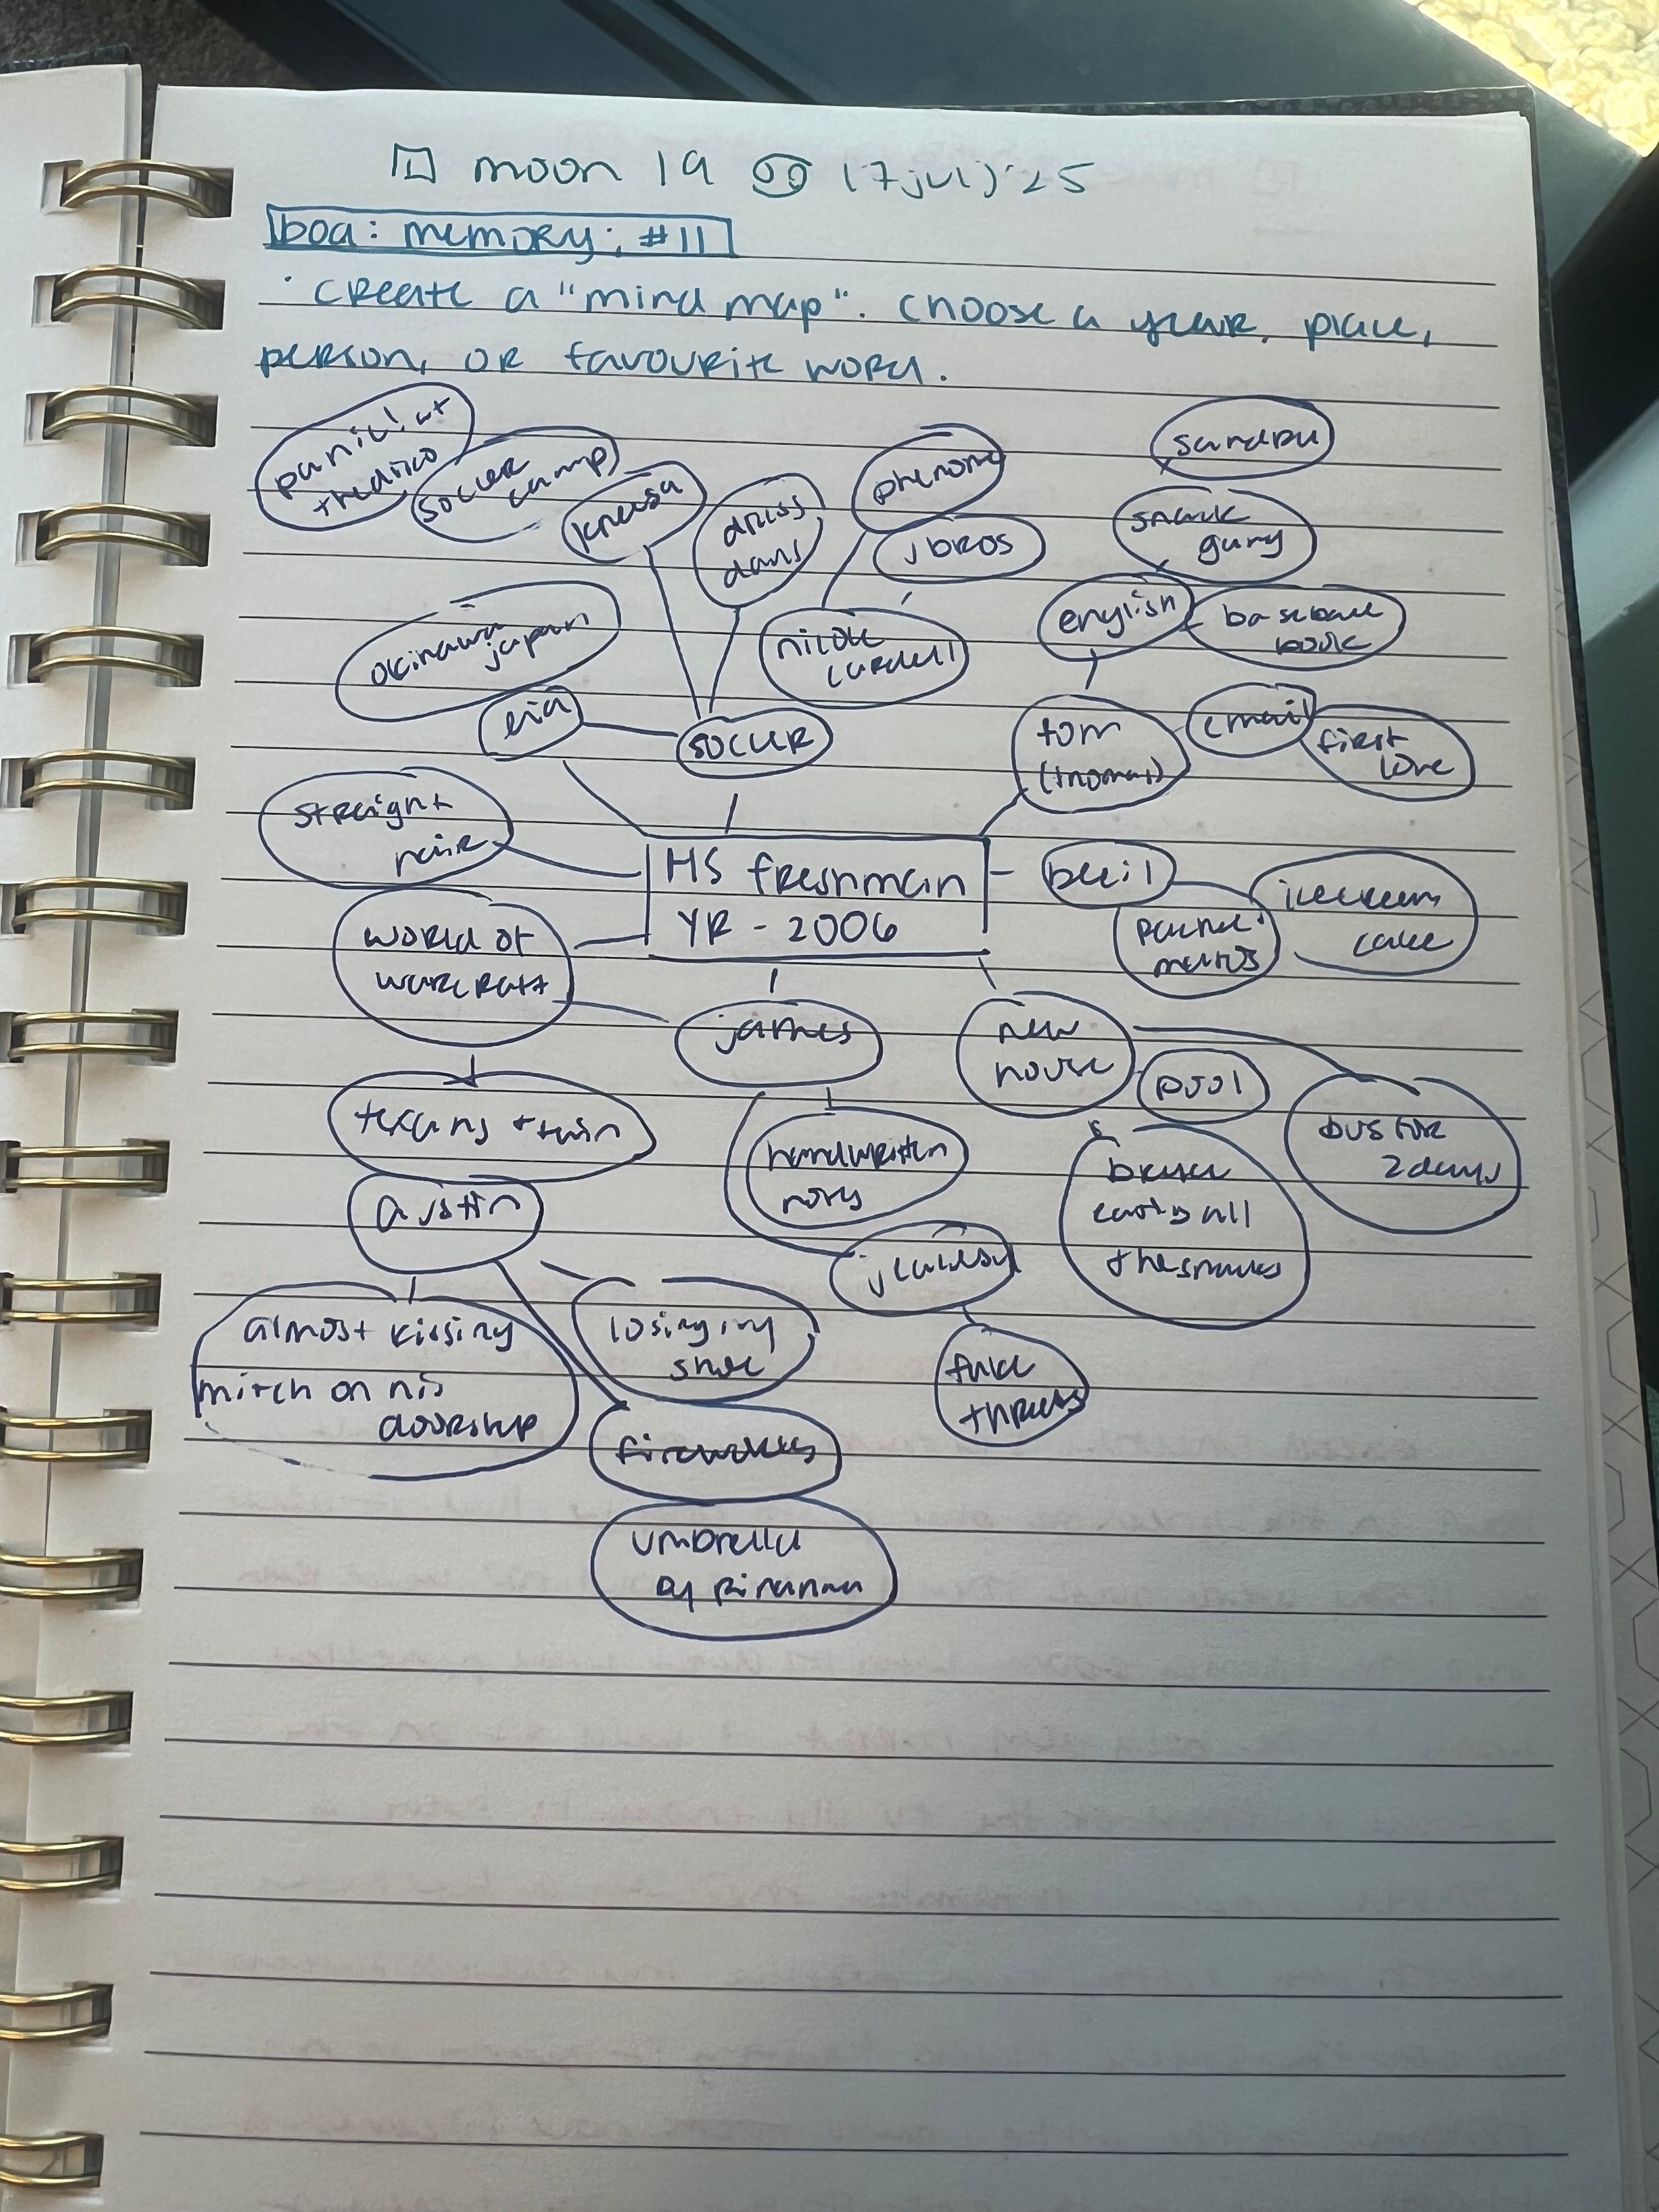 moon 19 ♋ 17jul '25
boa: memory: #11
· create a "mind map". choose a year, place,
person, or favourite word.
panic! at
the disco
soccer
camp
dress
days
phenom
jbros
sarah
snack
gurry
okinawa
japan
nicole
english
baseball
book
soccer
tom
(thomas)
email
first
love
straight
hair
HS freshman
YR - 2006
icecream
cake
world of
warcraft
james
new
house
pool
bus for
2 days
texans + twin
handwritten
notes
bryce
eating all
the snacks
austin
jealousy
almost kissing
mitch on his
doorstep
losing my
shoe
fake
threats
fireworks
umbrella
by rihanna